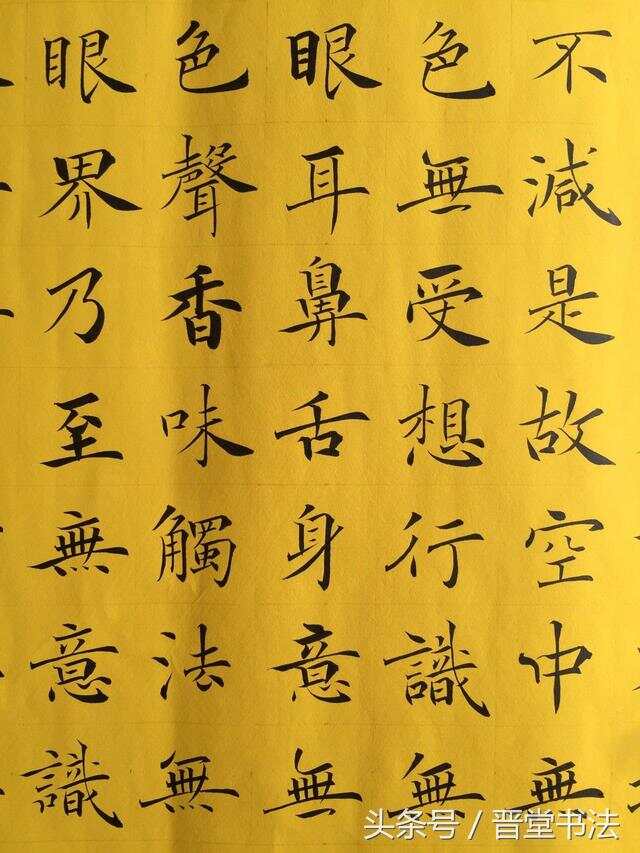 不減是故空中無
色無受想行識無
眼耳鼻舌身意無
色聲香味觸法無
眼界乃至無意識
头条号/晋堂书法